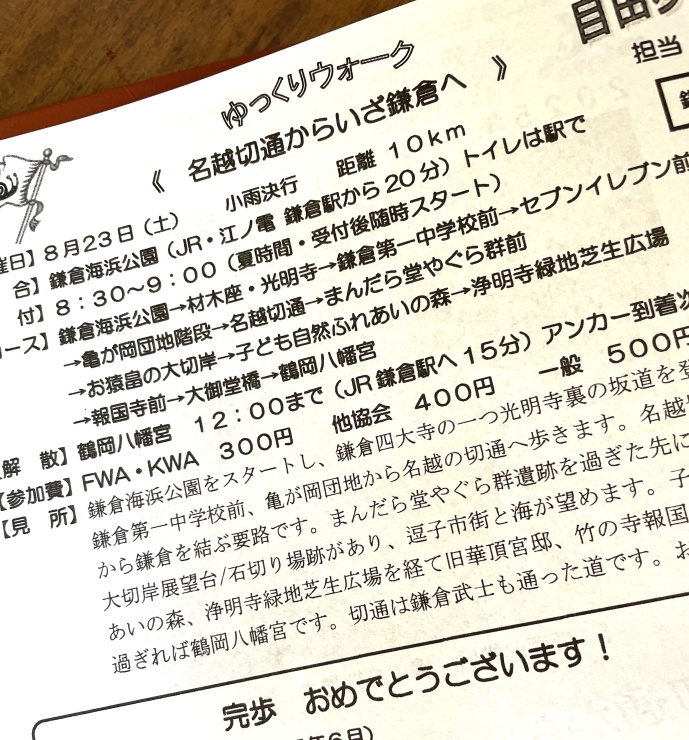 自由
担当
ゆっくりウォーク
《　名越切通からいざ鎌倉へ　》
小雨決行　距離　10km
催日】8月23日（土）
合】鎌倉海浜公園（JR・江ノ電 鎌倉駅から20分）トイレは駅で
付】8：30～9：00（夏時間・受付後随時スタート）
ース】鎌倉海浜公園→材木座・光明寺→鎌倉第一中学校前→セブンイレブン前
→亀が岡団地階段→名越切通→まんだら堂やぐら群前
→お猿畠の大切岸→子ども自然ふれあいの森→浄明寺緑地芝生広場
→報国寺前→大御堂橋→鶴岡八幡宮
解　散】鶴岡八幡宮　12：00まで（JR鎌倉駅へ15分）アンカー到着次
【参加費】FWA・KWA　300円　他協会　400円　一般　500円
【見　所】鎌倉海浜公園をスタートし、鎌倉四大寺の一つ光明寺裏の坂道を登
鎌倉第一中学校前、亀が岡団地から名越の切通へ歩きます。名越
から鎌倉を結ぶ要路です。まんだら堂やぐら群遺跡を過ぎた先に
大切岸展望台/石切り場跡があり、逗子市街と海が望めます。子
あいの森、浄明寺緑地芝生広場を経て旧華頂宮邸、竹の寺報国
過ぎれば鶴岡八幡宮です。切通は鎌倉武士も通った道です。お
完歩　おめでとうございます！
年6月）